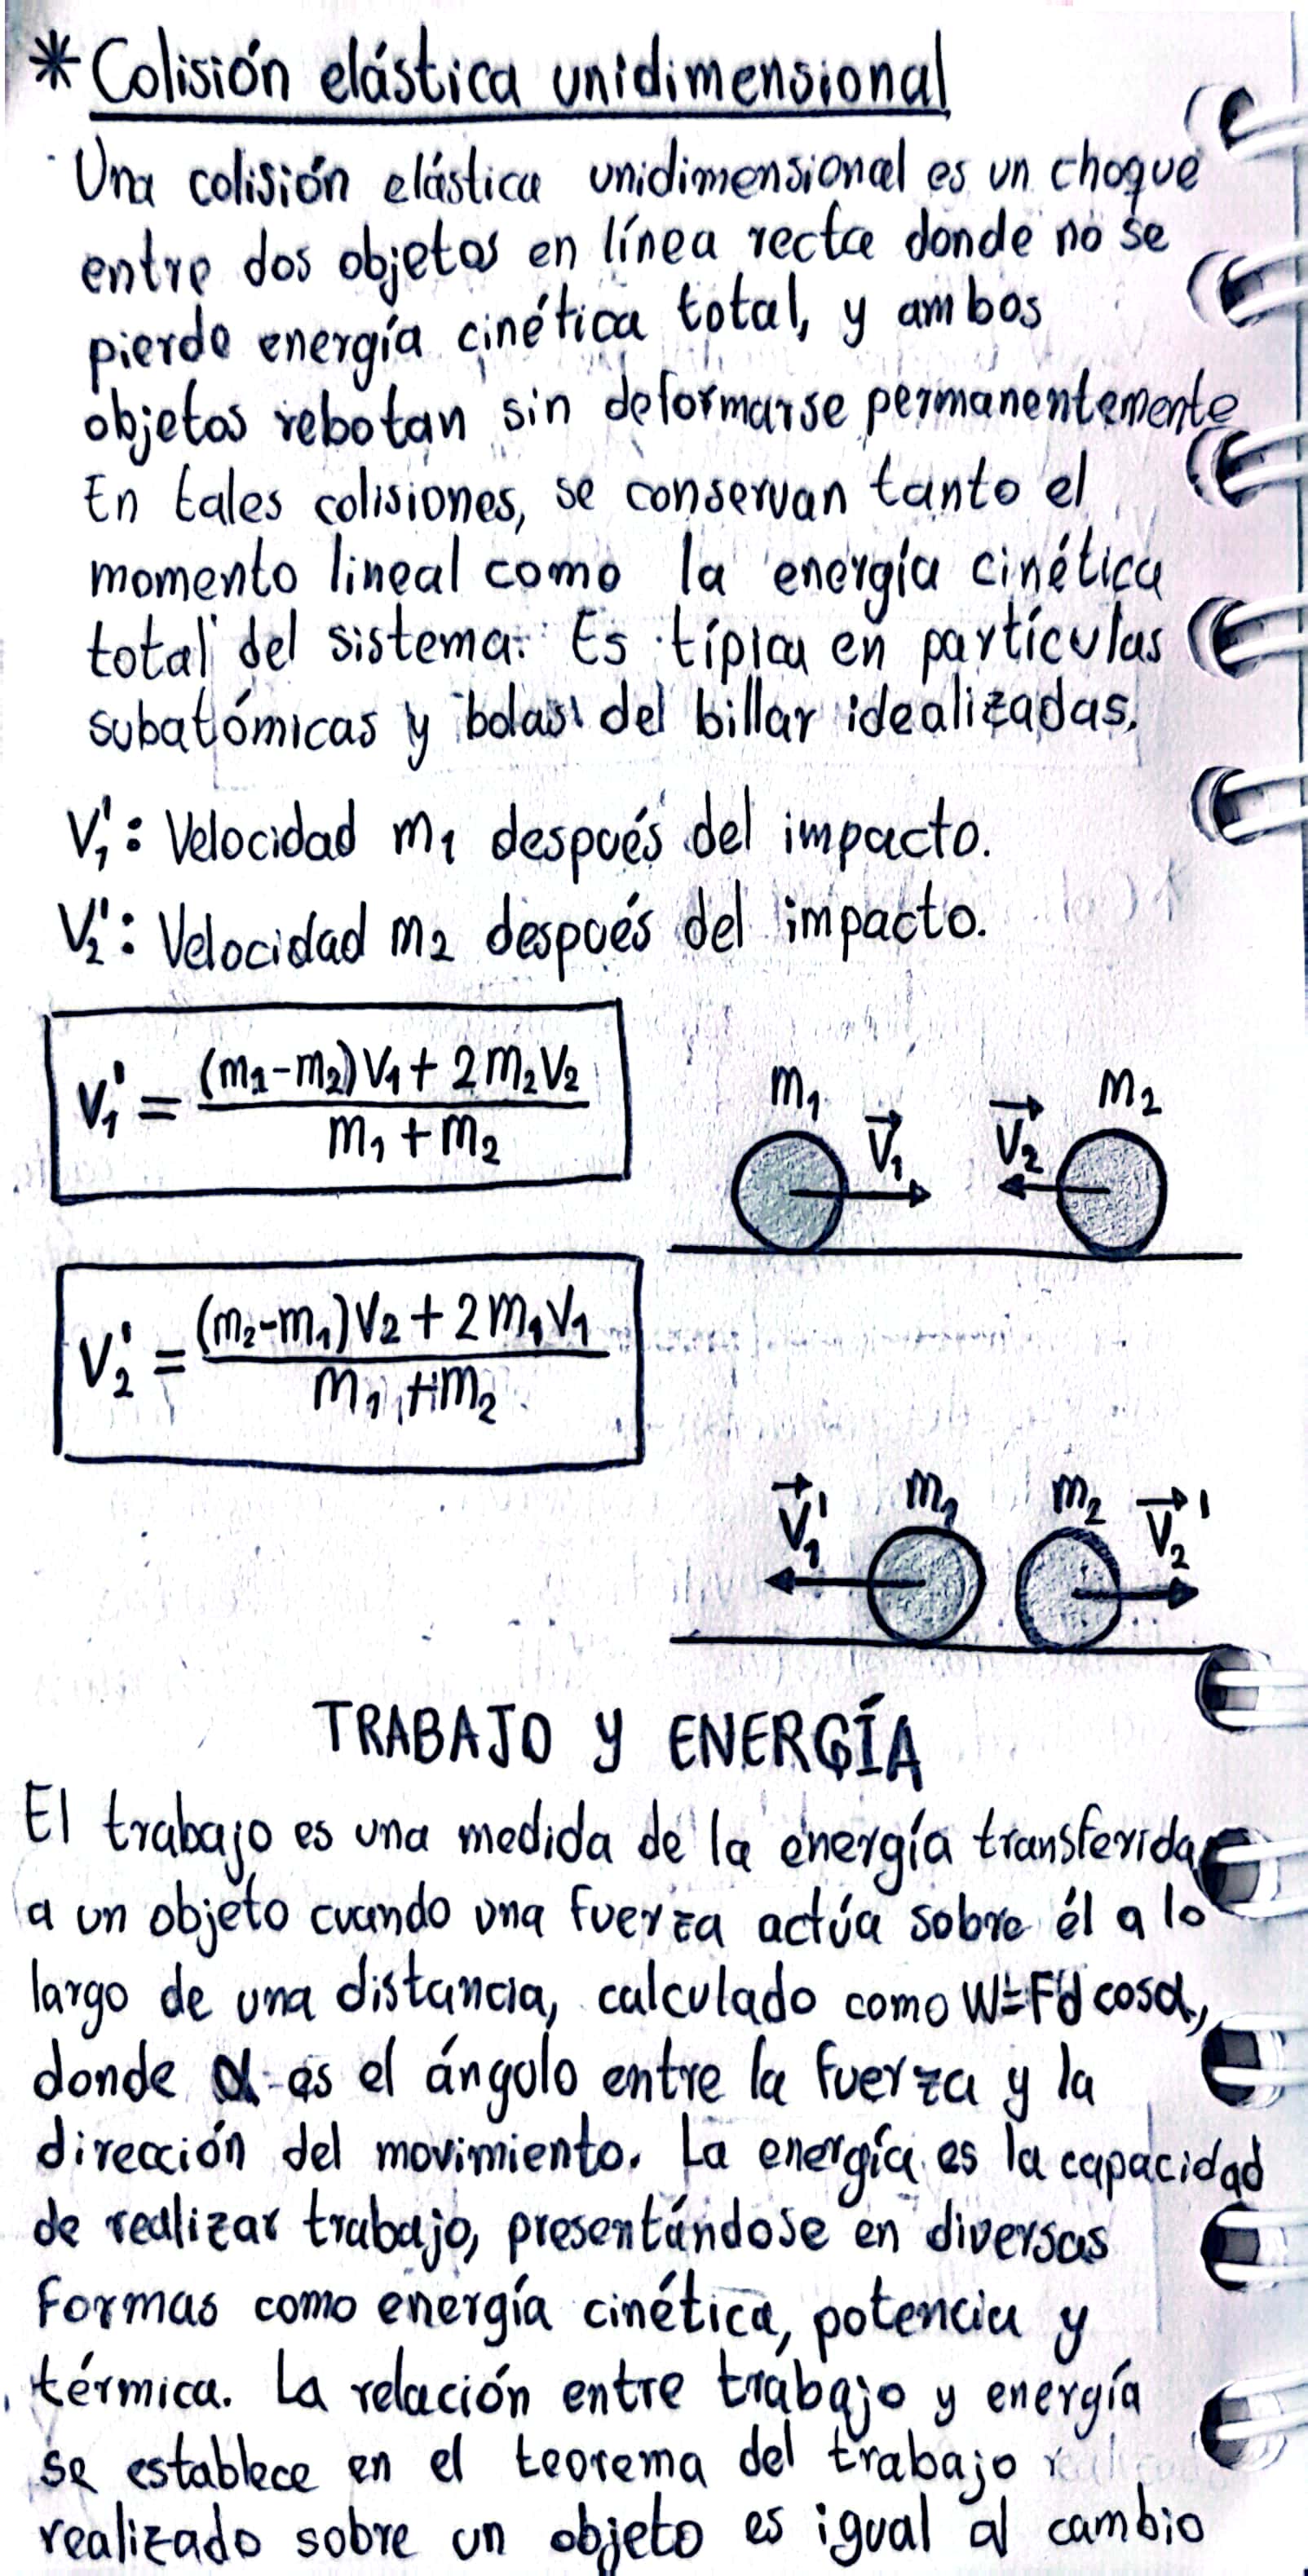 * Colisión elástica unidimensional
Una colisión elástica unidimensional es un choque
entre dos objetos en línea recta donde no se
pierde energía cinética total, y ambos
objetos rebotan sin deformarse permanentemente
En tales colisiones, se conservan tanto el
momento lineal como la energía cinética
total del sistema. Es típica en partículas
subatómicas y bolas del billar idealizadas.
V₁': Velocidad m₁ después del impacto.
V₂': Velocidad m₂ después del impacto.
V₁' = (m₁-m₂)V₁ + 2m₂V₂ / m₁ + m₂
m₁ V₁ V₂ m₂
V₂' = (m₂-m₁)V₂ + 2m₁V₁ / m₁ + m₂
V₁' m₁ m₂ V₂'
TRABAJO y ENERGÍA
El trabajo es una medida de la energía transferida
a un objeto cuando una fuerza actúa sobre él a lo
largo de una distancia, calculado como W=Fd cosα,
donde α es el ángulo entre la fuerza y la
dirección del movimiento. La energía es la capacidad
de realizar trabajo, presentándose en diversas
formas como energía cinética, potencia y
térmica. La relación entre trabajo y energía
se establece en el teorema del trabajo
realizado sobre un objeto es igual al cambio